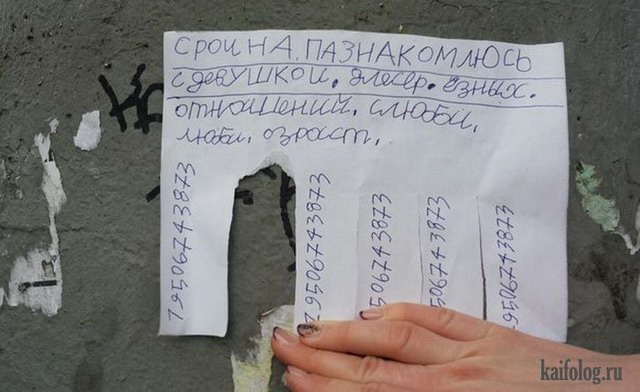 СРОИНА, ПАЗНАКОМЛЮСЬ
С ДЕВУШКОЙ. длесер. ёзных.
ОТНОШЕНИЙ. СЛЮБЫ.
любы. озраст.
79506743873
79506743873
9506743873
79506743873
79506743873
kaifolog.ru